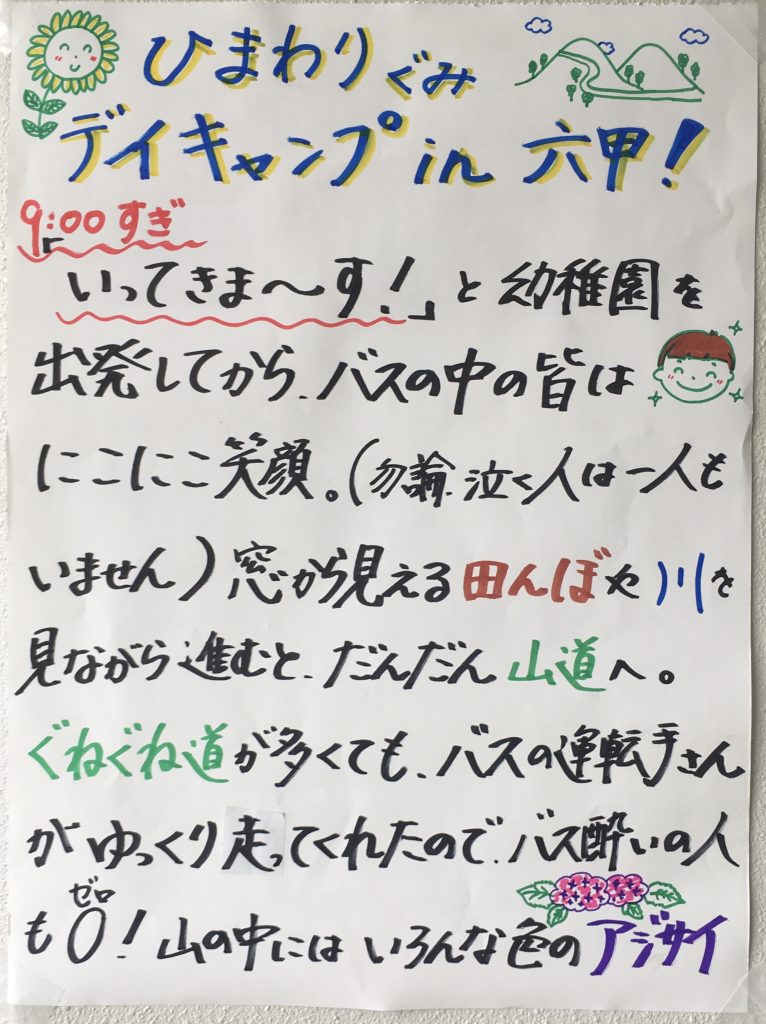 ひまわりぐみ
デイキャンプin 六甲!
9:00すぎ
「いってきま〜す!」と幼稚園を
出発してから、バスの中の皆は
にこにこ笑顔。(勿論、泣く人は一人も
いません)窓から見える田んぼや川を
見ながら進むと、だんだん山道へ。
ぐねぐね道が多くても、バスの運転手さん
がゆっくり走ってくれたので、バス酔いの人
ゼロ
も0!山の中にはいろんな色のアジサイ